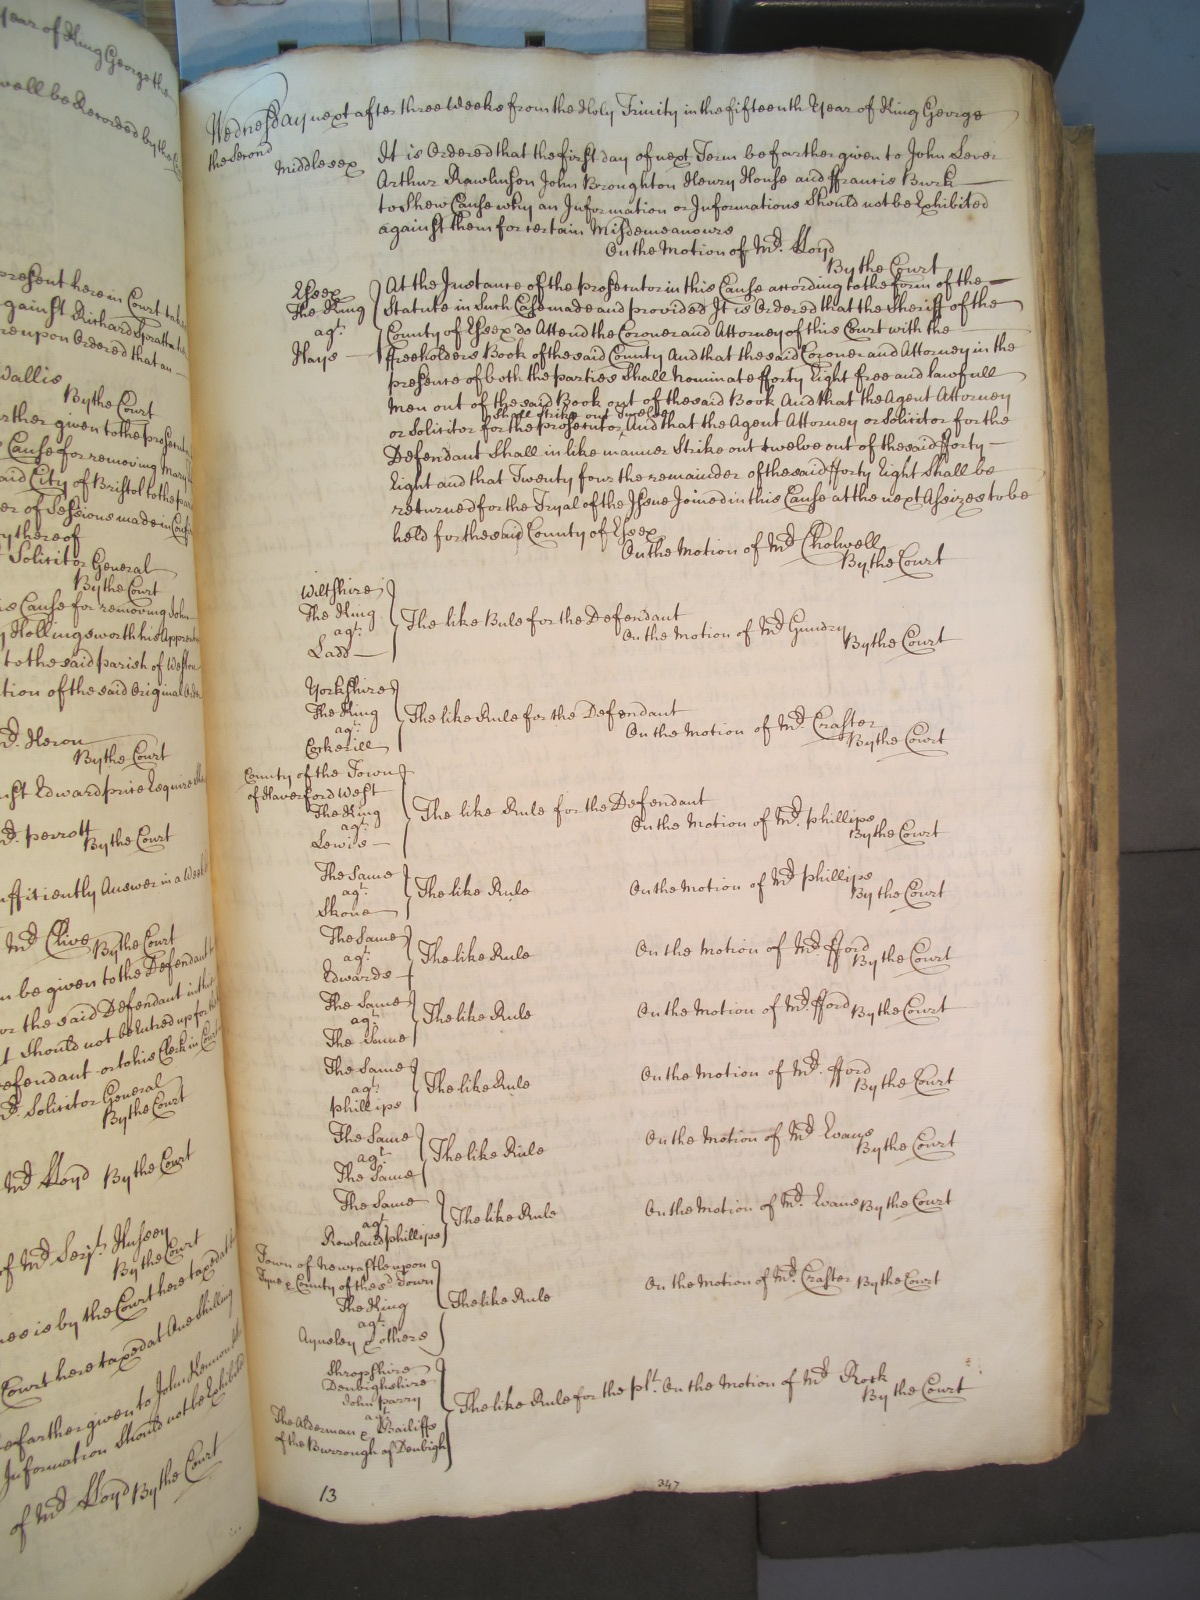 year of King George the
well be Recorded by the
present here in Court
against Richard
whereupon Ordered that an
Wallis
By the Court
farther given to the prosecutor
Cause for removing Mary
said City of Bristol to the
of Sessions made in
thereof
Solicitor General
By the Court
Cause for removing John
Hollingsworth his
to the said parish of Weston
of the said Original
Mr. Heron
By the Court
Edward price Esquire
Mr. perrott
By the Court
sufficiently Answer in a Week
Mr. Clive By the Court
be given to the Defendant
or the said Defendant in
Should not be Entred up for
Defendant or to his Clerk in Court
Mr. Solicitor General
By the Court
Mr. Lloyd By the Court
of Mr. Serjt. Hussey
By the Court
is by the Court here taxed at
Court here taxed at One Shilling
be farther given to John
Information Should not be Exhibited
of Mr. Lloyd By the Court
Wednesday next after three Weeks from the Holy Trinity in the fifteenth Year of King George
the Second
Middlesex
It is Ordered that the first day of next Term be farther given to John Lever
Arthur Rawlinson John Broughton Henry House and ffrancis Burk
to Shew Cause why an Information or Informations Should not be Exhibited
against them for certain Misdemeanours
On the Motion of Mr. Lloyd
By the Court
Essex
The King
agt.
Hays
At the Instance of the prosecutor in this Cause according to the form of the
Statute in Such Case made and provided It is Ordered that the Sheriff of the
County of Essex do Attend the Coroner and Attorney of this Court with the
ffreeholders Book of the said County And that the said Coroner and Attorney in the
presence of both the parties Shall Nominate fforty Eight free and lawfull
men out of the said Book out of the said Book And that the Agent Attorney
shall strike out twelve
or Solicitor for the prosecutor And that the Agent Attorney or Solicitor for the
Defendant Shall in like manner Strike out twelve out of the said fforty
Eight and that Twenty four the remainder of the said fforty Eight Shall be
returned for the Tryal of the Issue Joined in this Cause at the next Assizes to be
held for the said County of Essex
On the Motion of Mr. Cholwell
By the Court
Wiltshire
The King
agt.
Ladd
The like Rule for the Defendant
On the Motion of Mr. Gundry
By the Court
Yorkshire
The King
agt.
Cockerill
The like Rule for the Defendant
On the Motion of Mr. Craster
By the Court
County of the Town
of Haverford West
The King
agt.
Lewis
The like Rule for the Defendant
On the Motion of Mr. phillips
By the Court
The Same
agt.
Skone
The like Rule
On the Motion of Mr. phillips
By the Court
The Same
agt.
Edwards
The like Rule
On the Motion of Mr. fford
By the Court
The Same
agt.
The Same
The like Rule
On the Motion of Mr. fford By the Court
The Same
agt.
phillips
The like Rule
On the Motion of Mr. fford
By the Court
The Same
agt.
The Same
The like Rule
On the Motion of Mr. Evans
By the Court
The Same
agt.
Rowland phillips
The like Rule
On the Motion of Mr. Evans By the Court
Town of Newcastle upon
Tyne & County of the sd. Town
The King
agt.
Aynsley & others
The like Rule
On the Motion of Mr. Craster By the Court
Shropshire
Denbighshire
John parry
agt.
The Alderman & Bailiffs
of the Burrough of Denbigh
The like Rule for the plt. On the Motion of Mr. Rock
By the Court
13
347